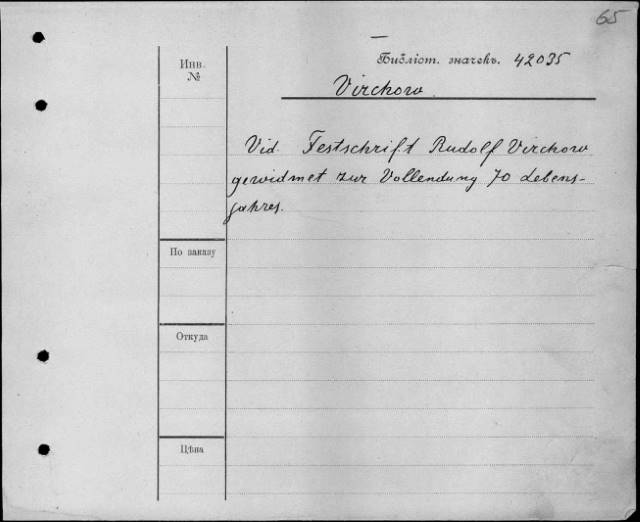 65
Инв.
№
Библіот. значекъ. 42035
Virchow.
Vid. Festschrift Rudolf Virchow
gewidmet zur Vollendung 70 Lebens-
jahres.
По заказу
Откуда
Цѣна